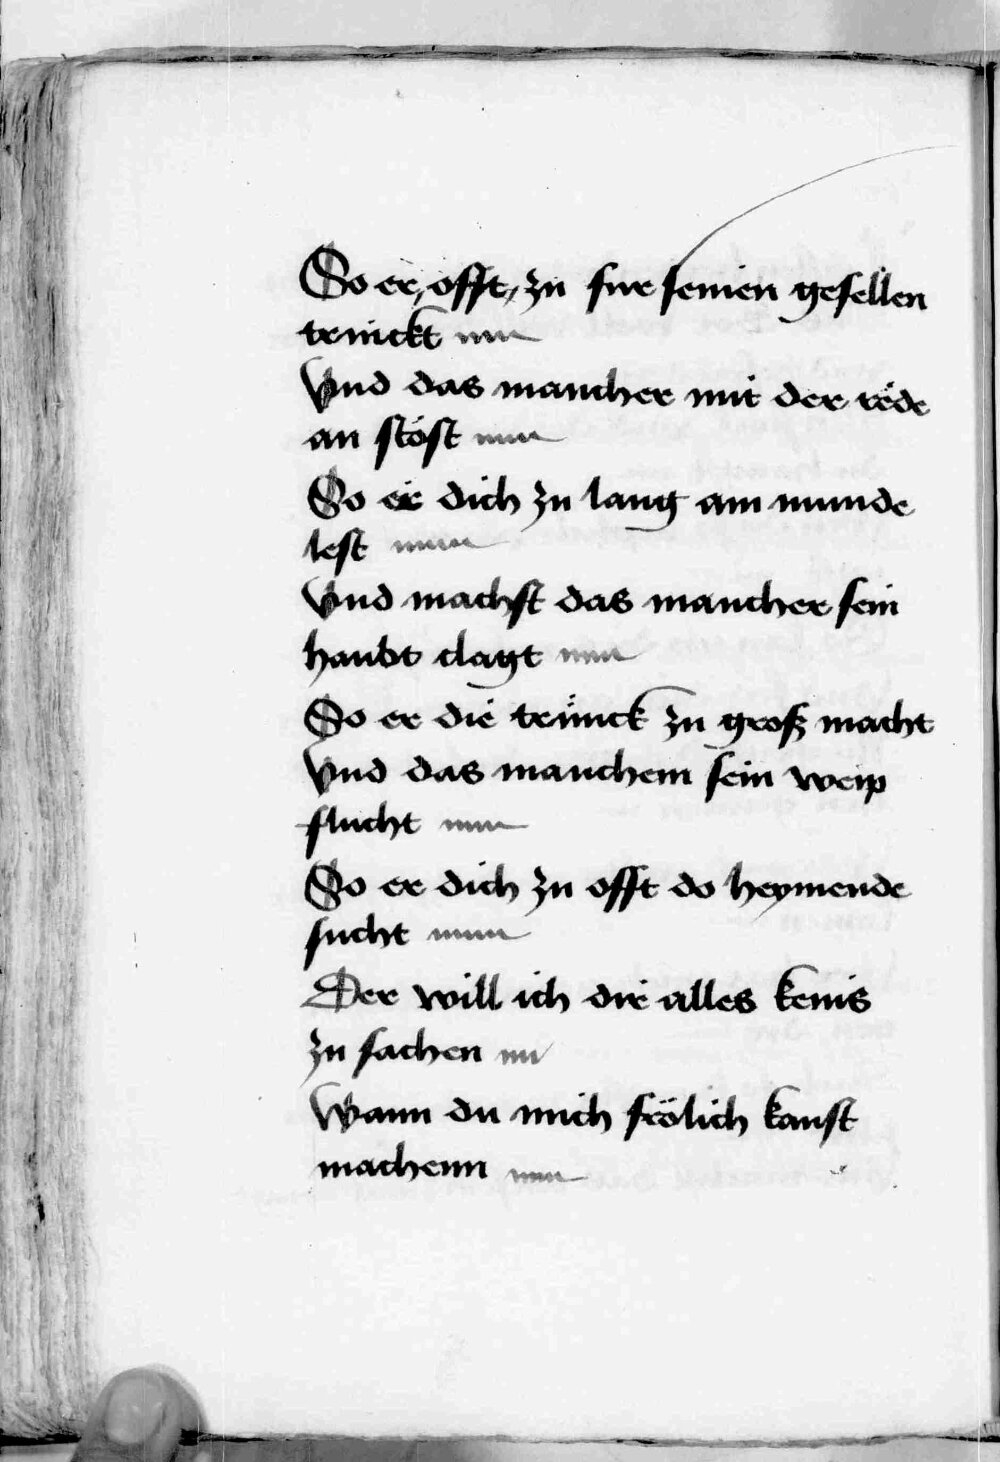 So er, offt, zu fur seinen gesellen
trinckt
Vnd das mancher mit der rede
an stöst
So er dich zu lang am munde
lest
Vnd machst das mancher sein
haubt clagt
So er die trünck zu groß macht
Vnd das manchem sein weip
flucht
So er dich zu offt do heymende
sucht
Der will ich dir alles keins
zu sachen
Wann du mich frölich kanst
machenn